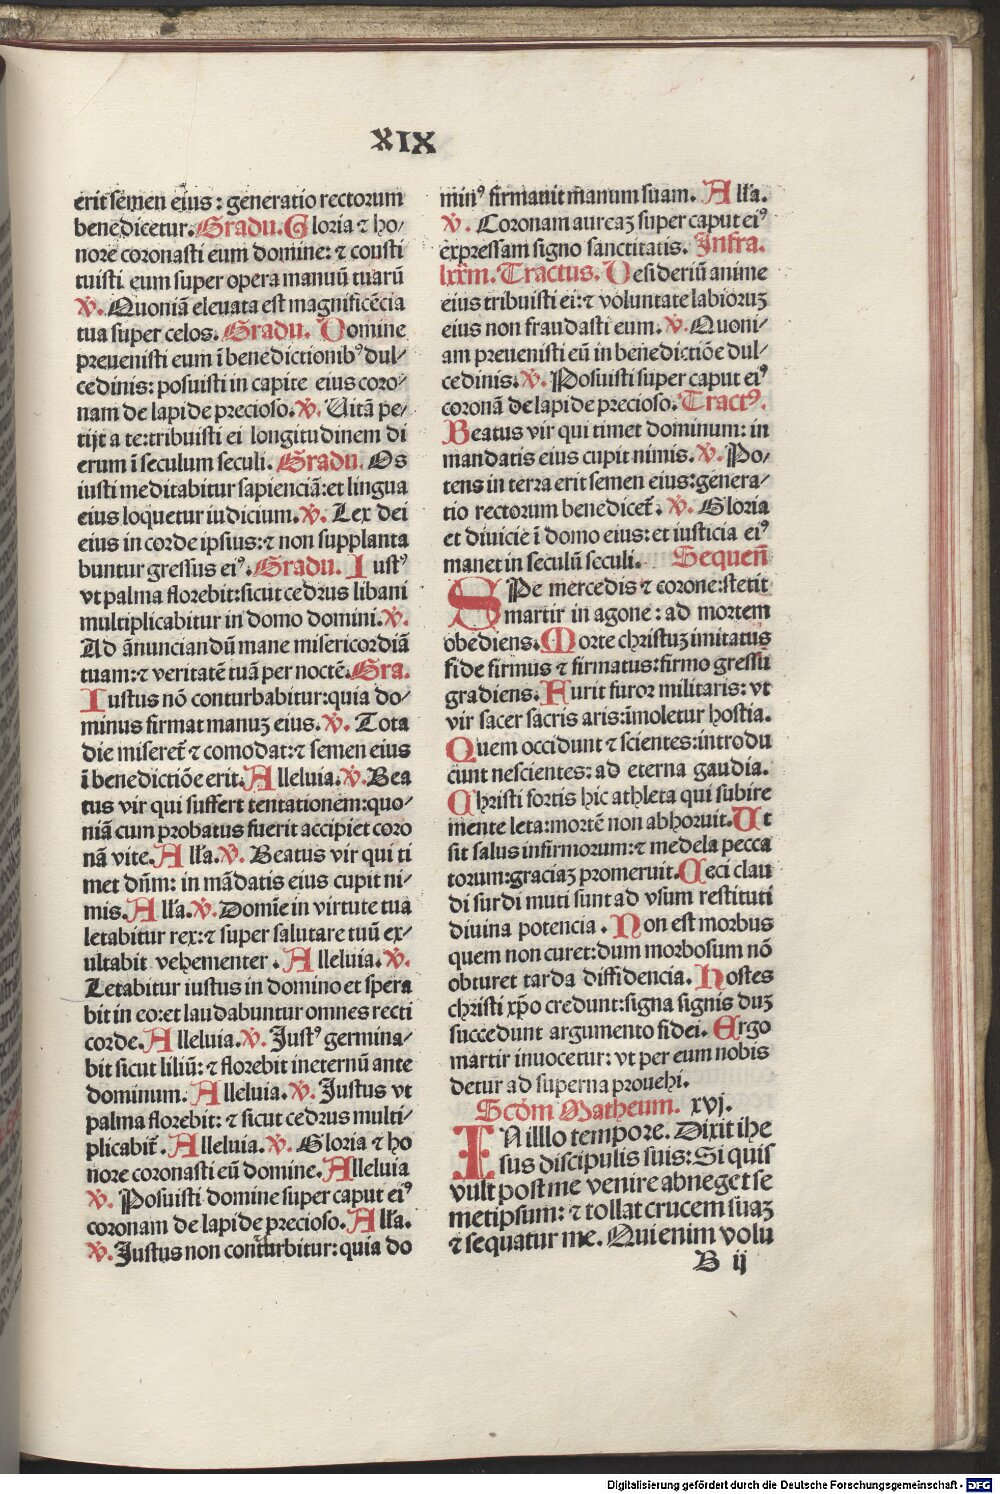 XIX
erit semen eius : generatio rectorum
benedicetur. Gradu. Gloria ⁊ ho/
nore coronasti eum domine: ⁊ consti
tuisti eum super opera manuū tuarū
V̇. Quoniā eleuata est magnificēcia
tua super celos. Gradu. Domine
preuenisti eum ī benedictionibꝰ dul/
cedinis: posuisti in capite eius coro/
nam de lapide precioso. V̇. Uitā pe/
tijt a te:tribuisti ei longitudinem di
erum ī seculum seculi. Gradu. Os
iusti meditabitur sapienciā:et lingua
eius loquetur iudicium. V̇. Lex dei
eius in corde ipsius:⁊ non supplanta
buntur gressus eiꝰ. Gradu. Iustꝰ
vt palma florebit:sicut cedrus libani
multiplicabitur in domo domini. V̇.
Ad ānunciandū mane misericordiā
tuam:⁊ veritatē tuā per noctē. Gra.
Iustus nō conturbabitur:quia do/
minus firmat manuꝫ eius. V̇. Tota
die miseret̄ ⁊ comodat:⁊ semen eius
ī benedictiōe erit. Alleluia. V̇. Bea
tus vir qui suffert tentationem:quo/
niā cum probatus fuerit accipiet coro
nā vite. All'a. V̇. Beatus vir qui ti
met dn̄m: in mādatis eius cupit ni/
mis. All'a. V̇. Domīe in virtute tua
letabitur rex:⁊ super salutare tuū ex/
ultabit vehementer . Alleluia. V̇.
Letabitur iustus in domino et spera
bit in eo:et laudabuntur omnes recti
corde. Alleluia. V̇. Justꝰ germina/
bit sicut liliū: ⁊ florebit ineternū ante
dominum. Alleluia. V̇. Justus vt
palma florebit: ⁊ sicut cedrus multi/
plicabit̄ . Alleluia. V̇. Gloria ⁊ ho
nore coronasti eū domine. Alleluia
V̇. Posuisti domine super caput eiꝰ
coronam de lapide precioso. All'a.
V̇. Justus non conturbitur: quia do
minꝰ firmauit manum suam. All'a.
V̇. Coronam aureaꝫ super caput eiꝰ
expressam signo sanctitatis. Infra.
lxxm. Tractus. Desideriū anime
eius tribuisti ei:⁊ voluntate labioruꝫ
eius non fraudasti eum. V̇. Quoni/
am preuenisti eū in benedictiōe dul/
cedinis. V̇. Posuisti super caput eiꝰ
coronā de lapide precioso. Tractꝰ.
Beatus vir qui timet dominum: in
mandatis eius cupit nimis. V̇. Po/
tens in terra erit semen eius:genera/
tio rectorum benedicet̄ . V̇. Gloria
et diuicie ī domo eius: et iusticia eiꝰ
manet in seculū seculi. Sequen̄
SPe mercedis ⁊ corone:stetit
martir in agone : ad mortem
obediens. Morte christuꝫ imitatus
fide firmus ⁊ firmatus:firmo gressu
gradiens. Furit furor militaris: vt
vir sacer sacris aris:īmoletur hostia.
Quem occidunt ⁊ scientes:introdu
cunt nescientes: ad eterna gaudia.
Christi fortis hic athleta qui subire
mente leta:mortē non abhoruit. Ut
sit salus infirmorum:⁊ medela pecca
torum:graciaꝫ promeruit. Ceci clau
di surdi muti sunt ad vsum restituti
diuina potencia . Non est morbus
quem non curet:dum morbosum nō
obturet tarda diffidencia. Hostes
christi xp̄o credunt:signa signis duꝫ
succedunt argumento fidei. Ergo
martir inuocetur: vt per eum nobis
detur ad superna prouehi.
Scdm̄ Matheum. xvj.
IN illlo tempore. Dixit ihe
sus discipulis suis: Si quis
vult post me venire abneget se
metipsum: ⁊ tollat crucem suaꝫ
⁊ sequatur me. Qui enim volu
B ij
Digitalisierung gefördert durch die Deutsche Forschungsgemeinschaft - DFG